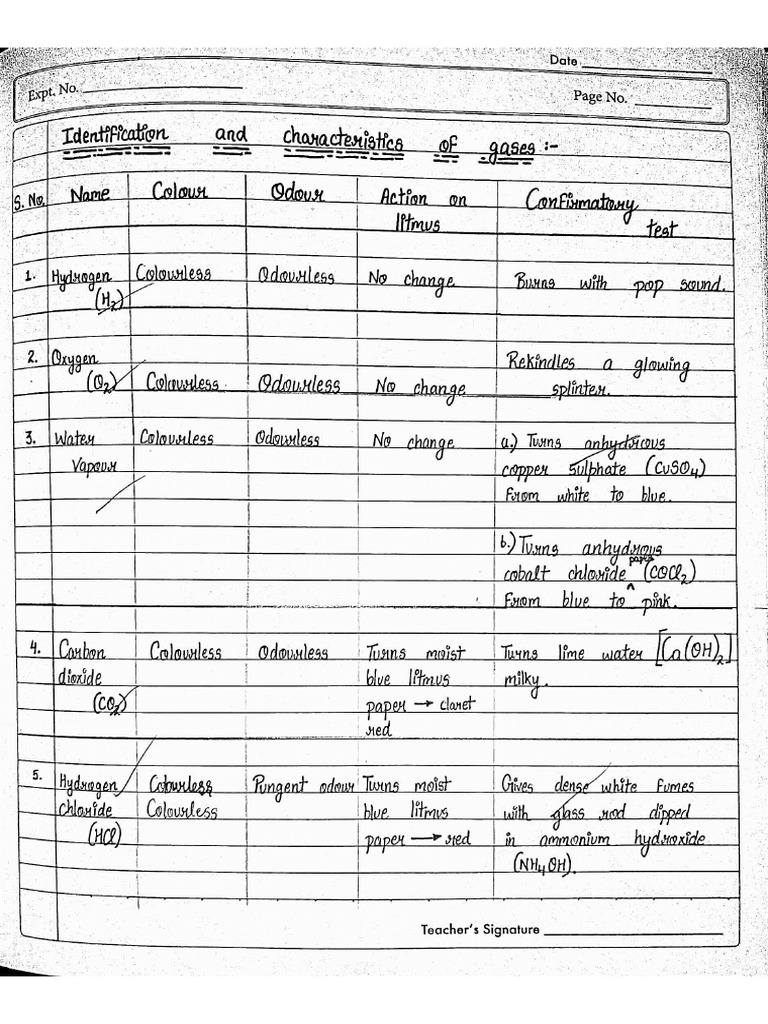 Date
Expt. No.
Page No.
Identification and characteristics of gases :-
S. No. Name Colour Odour Action on litmus Confirmatory test
1. Hydrogen (H2) Colourless Odourless No change Burns with pop sound.
2. Oxygen (O2) Colourless Odourless No change Rekindles a glowing splinter.
3. Water Vapour Colourless Odourless No change a.) Turns anhydrous
copper sulphate (CuSO4)
From white to blue.
b.) Turns anhydrous
cobalt chloride paper (COCl2)
From blue to pink.
4. Carbon Colourless Odourless Turns moist Turns lime water [Ca(OH)2]
dioxide blue litmus milky.
(CO2) paper → claret
red
5. Hydrogen Colourless Pungent odour Turns moist Gives dense white fumes
chloride Colourless blue litmus with glass rod dipped
(HCl) paper → red in ammonium hydroxide
(NH4OH).
Teacher's Signature